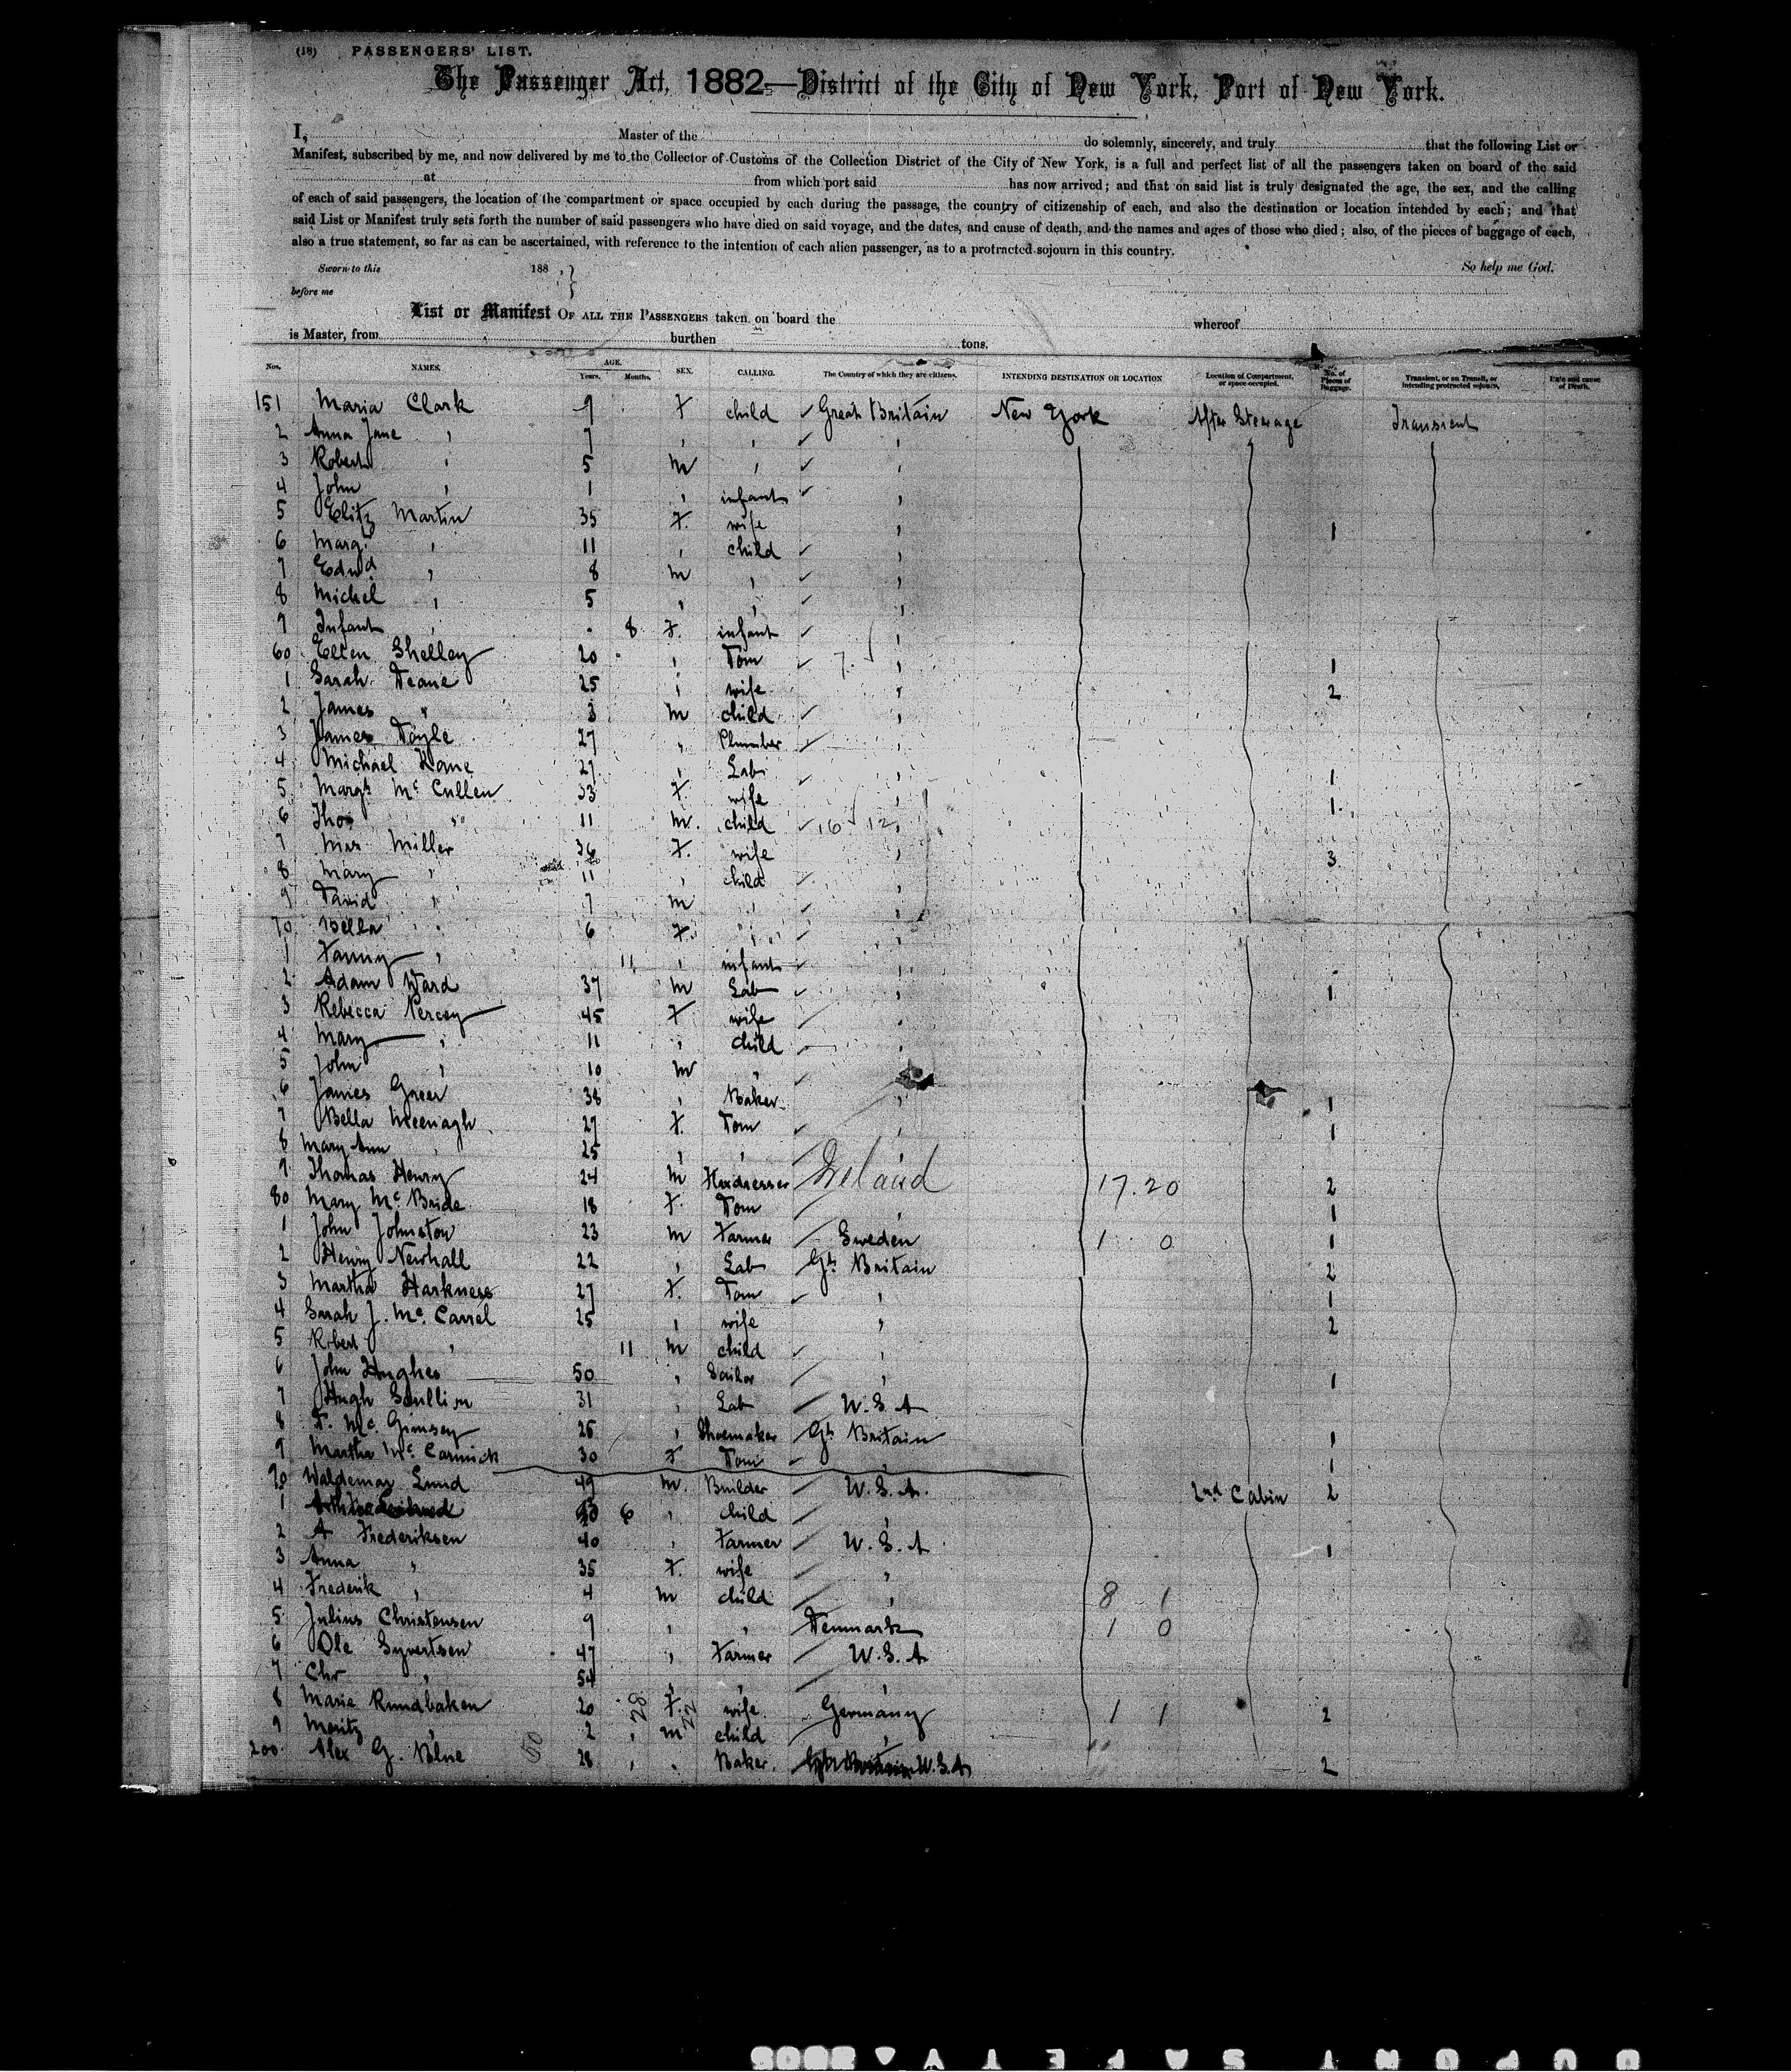 (18) PASSENGERS' LIST.
The Passenger Act, 1882—District of the City of New York, Port of New York.
I, Master of the do solemnly, sincerely, and truly that the following List or
Manifest, subscribed by me, and now delivered by me to the Collector of Customs of the Collection District of the City of New York, is a full and perfect list of all the passengers taken on board of the said
at from which port said has now arrived; and that on said list is truly designated the age, the sex, and the calling
of each of said passengers, the location of the compartment or space occupied by each during the passage, the country of citizenship of each, and also the destination or location intended by each; and that
said List or Manifest truly sets forth the number of said passengers who have died on said voyage, and the dates, and cause of death, and the names and ages of those who died; also, of the pieces of baggage of each,
also a true statement, so far as can be ascertained, with reference to the intention of each alien passenger, as to a protracted sojourn in this country.
Sworn to this 188 , } So help me God.
before me
List or Manifest OF ALL THE PASSENGERS taken on board the whereof
is Master, from burthen tons.
Nos. NAMES. AGE. Years. Months. SEX. CALLING. The Country of which they are citizens. INTENDING DESTINATION OR LOCATION Location of Compartment, or space occupied. No. of Pieces of Baggage. Transient, or on Transit, or intending protracted sojourn. Date and cause of Death.
151 Maria Clark 9 F child ✓ Great Britain New York After Steerage Transient
2 Anna Jane " 7 " " ✓ "
3 Robert " 5 M " ✓ "
4 John " 1 " infant ✓ "
5 Eliz Martin 35 F. wife " 1
6 Margt " 11 " child ✓ "
7 Edwd " 8 M " ✓ "
8 Michel " 5 " " ✓ "
9 Infant " 8 F. infant ✓ "
60 Ellen Shelley 20 " Dom ✓ 7. " 1
1 Sarah Deane 25 " wife " 2
2 James " 3 M child ✓ "
3 James Doyle 27 " Plumber ✓ "
4 Michael Kane 27 " Lab ✓ " 1
5 Margt McCullen 33 F. wife " 1
6 Thos " 11 M. child ✓ 16 12 "
7 Mrs Miller 36 F. wife " 3
8 Mary " 11 " child ✓ "
9 David " 7 M " ✓ "
70 Bella " 6 F. " ✓ "
1 Fanny " 11 " infant ✓ "
2 Adam Ward 37 M Lab ✓ " 1
3 Rebecca Percey 45 F wife "
4 Mary " 11 " child "
5 John " 10 M " ✓
6 James Greer 38 " Baker " 1
7 Bella Meenagh 27 F. Dom ✓ " 1
8 Mary Ann " 25 " " "
9 Thomas Henry 24 M Hairdresser Ireland 17.20 2
80 Mary McBride 18 F. Dom " 1
1 John Johnston 23 M Farmer Sweden 1 0 1
2 Henry Newhall 22 " Lab Gt Britain 2
3 Martha Harkness 27 F. Dom ✓ " 1
4 Sarah J. McCarrel 25 " wife " 2
5 Robert " 11 M child ✓ "
6 John Hughes 50 " " 1
7 Hugh Scullion 31 " Lab U.S.A
8 McGimsey " Shoemaker Gt Britain 1
9 Martha McCarmick 30 F Dom ✓ " 1
90 Waldemar Lund 49 M. Builder U.S.A. 2nd Cabin 2
1 6 " child "
2 A Frederiksen 40 " Farmer U.S.A 1
3 Anna " 35 F. wife "
4 Frederik " 4 M child " 8 1
5 Julius Christensen 9 " " Denmark 1 0
6 Ole Syvertsen 47 " Farmer U.S.A
7 Chr " 54 " " "
8 Marie Rundbaken 20 28 F. 22 wife Germany 1 1 2
9 Moritz " 2 M child "
200 Alex G. Blue 50 28 " Baker U.S.A 2